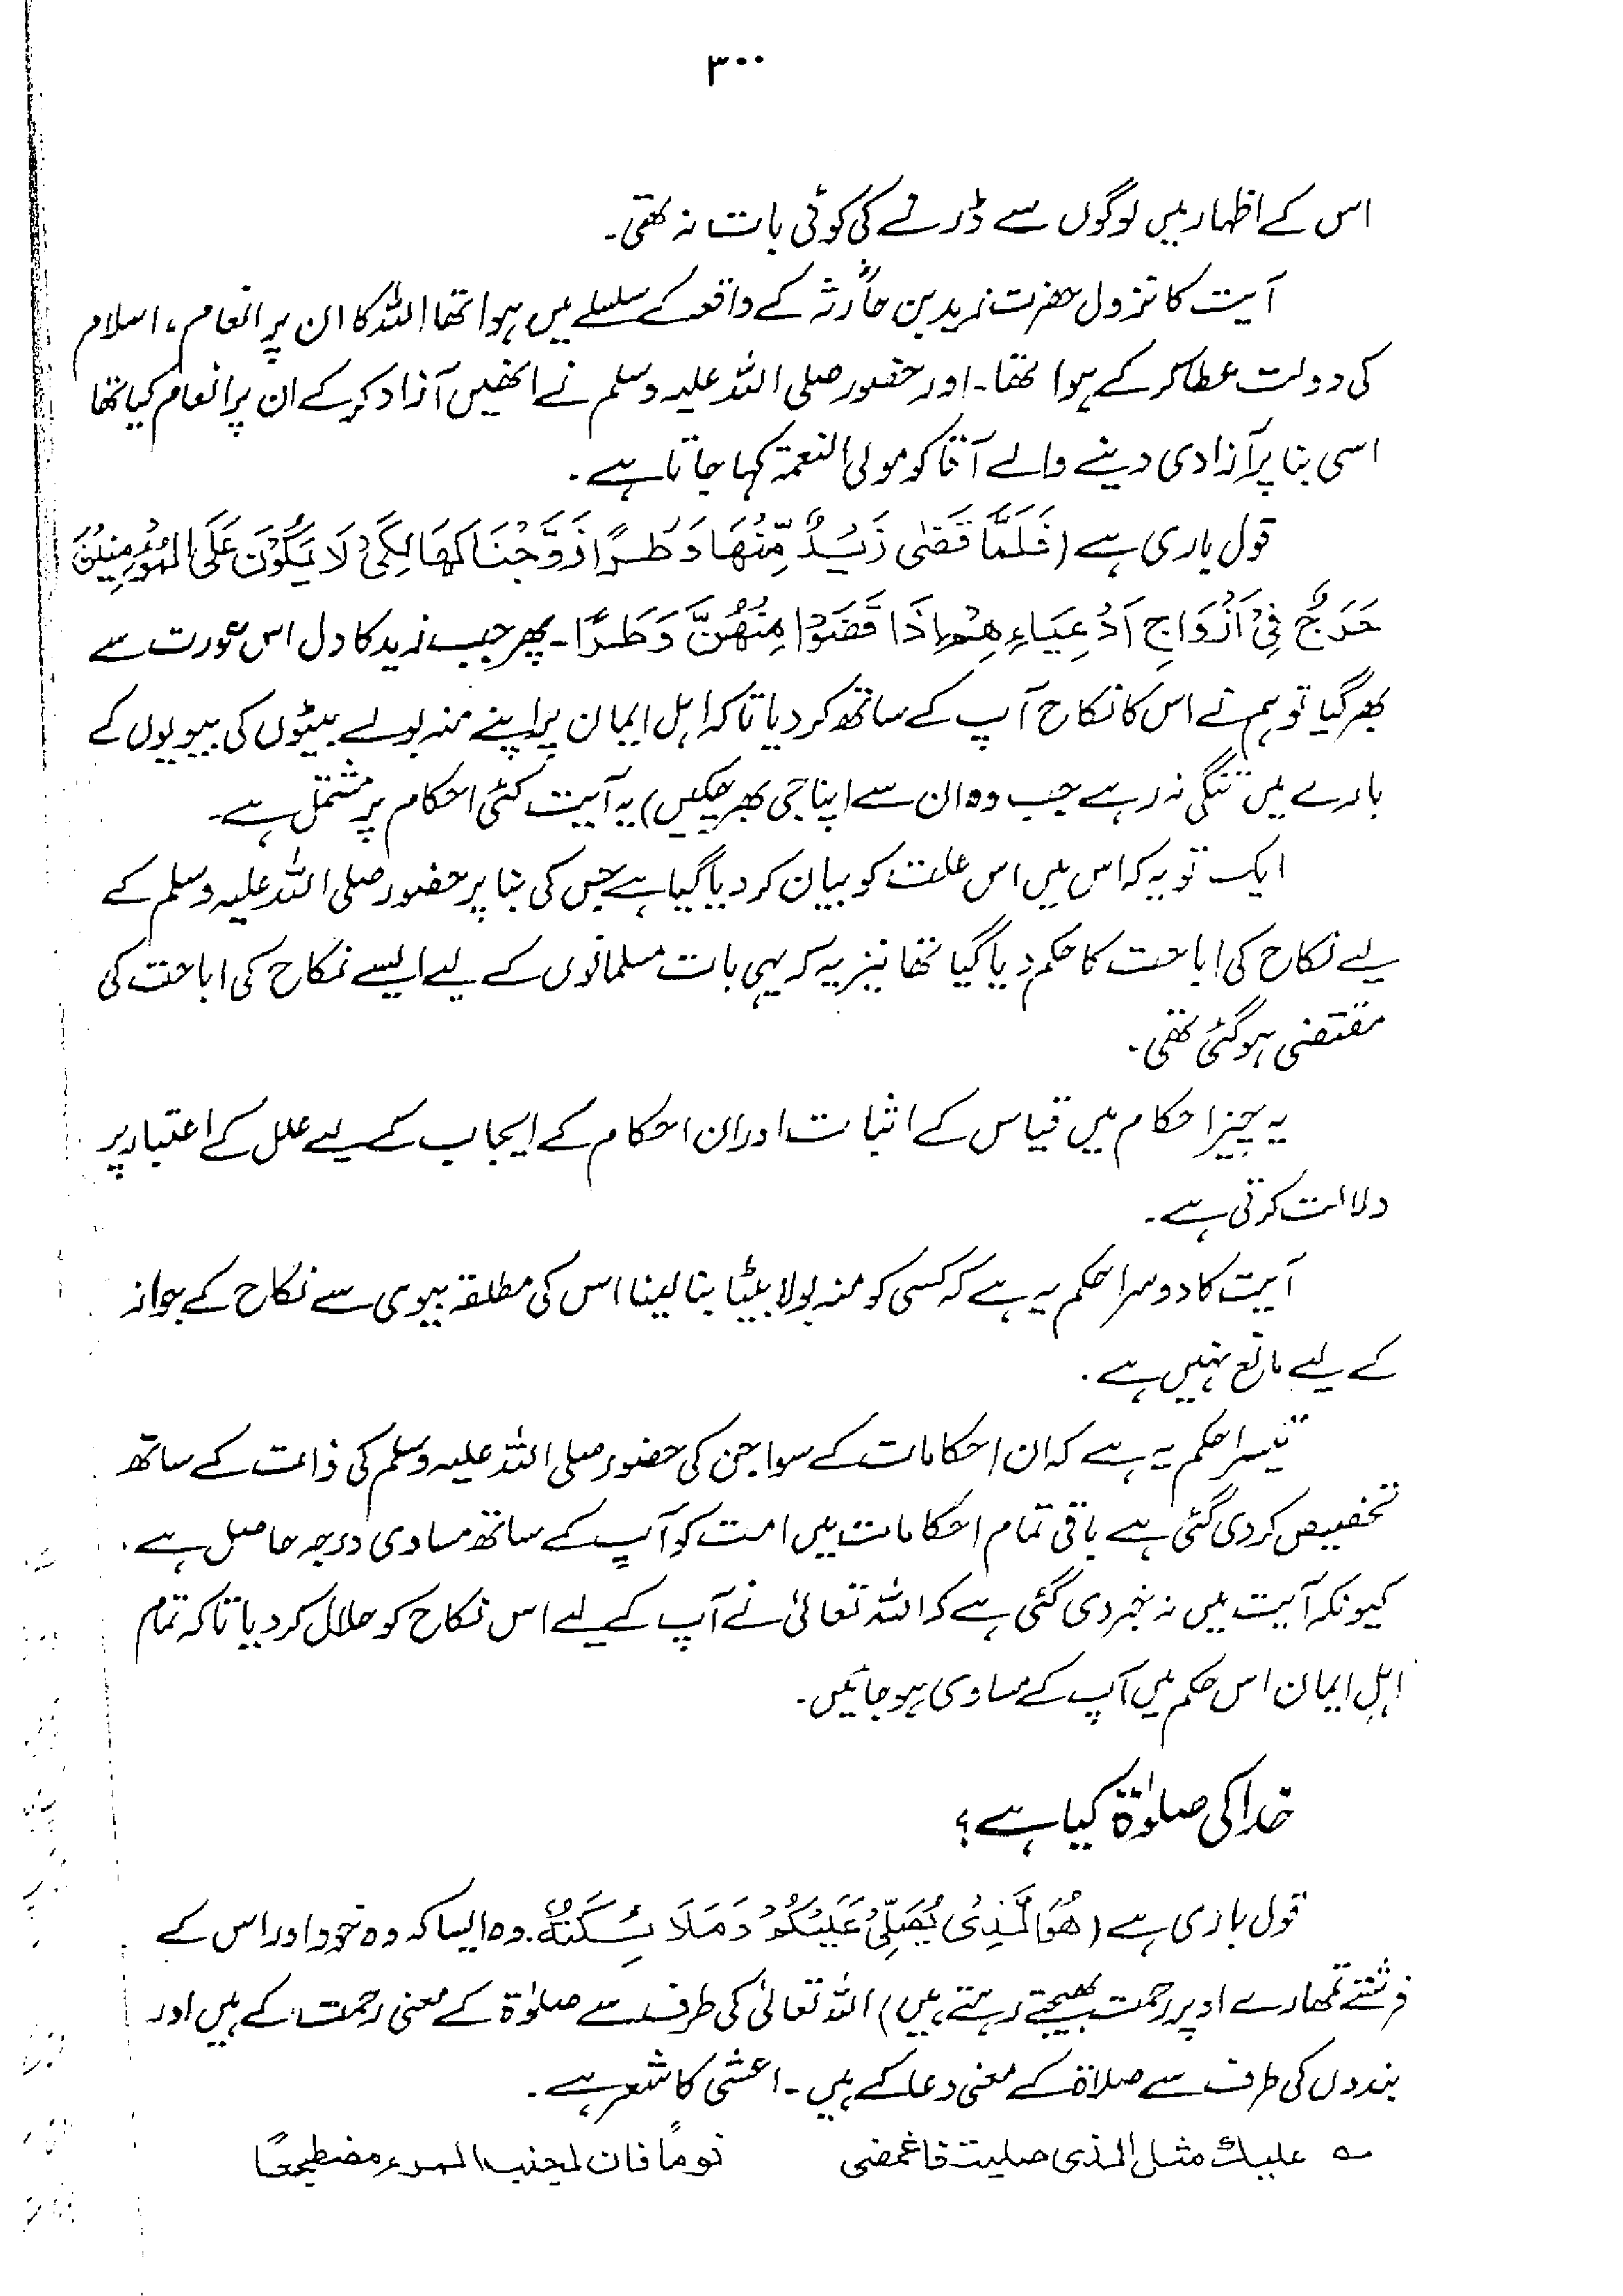 ۳۰۰
اس کے اظہار میں لوگوں سے ڈرنے کی کوئی بات نہ تھی۔
آیت کا نزول حضرت زید بن حارثہؓ کے واقعہ کے سلسلے میں ہوا تھا اللہ کا ان پر انعام، اسلام
کی دولت عطا کر کے ہوا تھا۔ اور حضور صلی اللہ علیہ وسلم نے انھیں آزاد کر کے ان پر انعام کیا تھا
اسی بنا پر آزادی دینے والے آقا کو مولی النعمۃ کہا جاتا ہے۔
قول باری ہے (فَلَمَّا قَضٰى زَيْدٌ مِّنْهَا وَطَرًا زَوَّجْنَاكَهَا لِكَيْ لَا يَكُوْنَ عَلَى الْمُؤْمِنِيْنَ
حَرَجٌ فِيْ اَزْوَاجِ اَدْعِيَاءِهِمْ اِذَا قَضَوْا مِنْهُنَّ وَطَرًا۔ پھر جب زید کا دل اس عورت سے
بھر گیا تو ہم نے اس کا نکاح آپ کے ساتھ کر دیا تاکہ اہل ایمان پر اپنے منہ بولے بیٹوں کی بیویوں کے
بارے میں تنگی نہ رہے جب وہ ان سے اپنا جی بھر چکیں) یہ آیت کئی احکام پر مشتمل ہے۔
ایک تو یہ کہ اس میں اس علت کو بیان کر دیا گیا ہے جس کی بنا پر حضور صلی اللہ علیہ وسلم کے
لیے نکاح کی اباحت کا حکم دیا گیا تھا نیز یہ کہ یہی بات مسلمانوں کے لیے ایسے نکاح کی اباحت کی
مقتضی ہو گئی تھی۔
یہ چیز احکام میں قیاس کے اثبات اور ان احکام کے ایجاب کے لیے علل کے اعتبار پر
دلالت کرتی ہے۔
آیت کا دوسرا حکم یہ ہے کہ کسی کو منہ بولا بیٹا بنا لینا اس کی مطلقہ بیوی سے نکاح کے جواز
کے لیے مانع نہیں ہے۔
تیسرا حکم یہ ہے کہ ان احکامات کے سوا جن کی حضور صلی اللہ علیہ وسلم کی ذات کے ساتھ
تخصیص کر دی گئی ہے باقی تمام احکامات میں امت کو آپ کے ساتھ مساوی درجہ حاصل ہے۔
کیونکہ آیت میں یہ خبر دی گئی ہے کہ اللہ تعالیٰ نے آپ کے لیے اس نکاح کو حلال کر دیا تاکہ تمام
اہل ایمان اس حکم میں آپ کے مساوی ہو جائیں۔
خدا کی صلوٰۃ کیا ہے؟
قول باری ہے (هُوَ الَّذِيْ يُصَلِّيْ عَلَيْكُمْ وَمَلَائِكَتُهٗ۔ وہ ایسا کہ وہ خود اور اس کے
فرشتے تمھارے اوپر رحمت بھیجتے رہتے ہیں) اللہ تعالیٰ کی طرف سے صلوٰۃ کے معنی رحمت کے ہیں اور
بندوں کی طرف سے صلاۃ کے معنی دعا کے ہیں۔ اعشی کا شعر ہے۔
؎ علیك مثل الذی صلیت فاغمضی نومًا فان لجنب المرء مضطجعًا